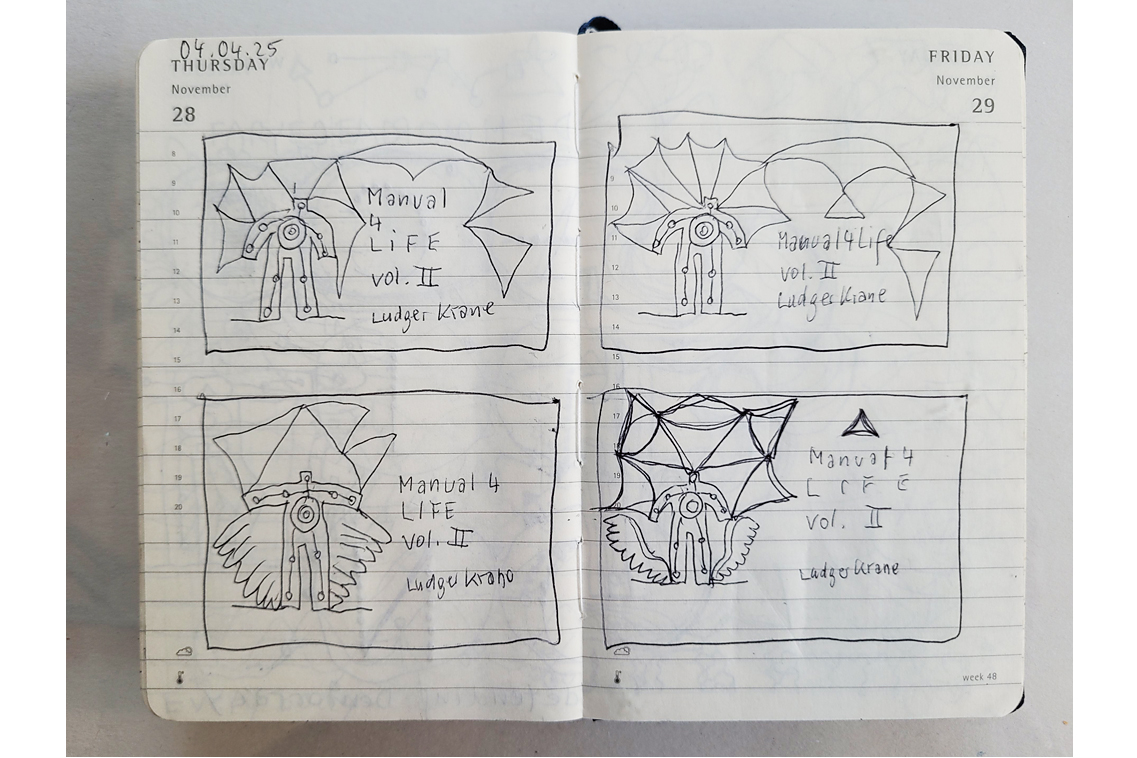 04.04.25
THURSDAY
November
28
8
9
10
11
12
13
14
15
16
17
18
19
20
Manual
4
LiFE
vol. II
Ludger Krane
Manual 4
LIFE
vol. II
Ludger Krane
FRIDAY
November
29
8
9
10
11
12
13
14
15
16
17
18
19
20
Manual4Life
vol. II
Ludger Krane
Manual 4
LIFE
vol. II
Ludger Krane
week 48